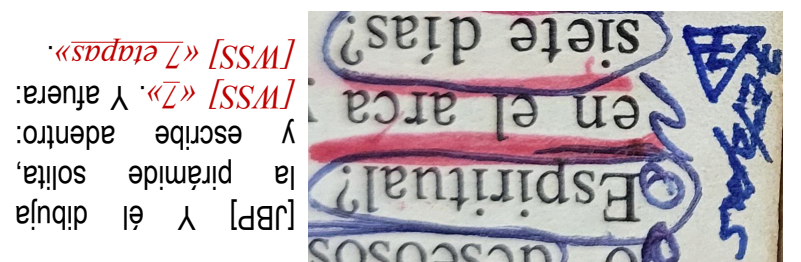 o deseosos
Espiritual?
en el arca
siete días?
7
7 ETAPAS
[JBP] Y él dibuja
la pirámide solita,
y escribe adentro:
[WSS] «7». Y afuera:
[WSS] «7 etapas».